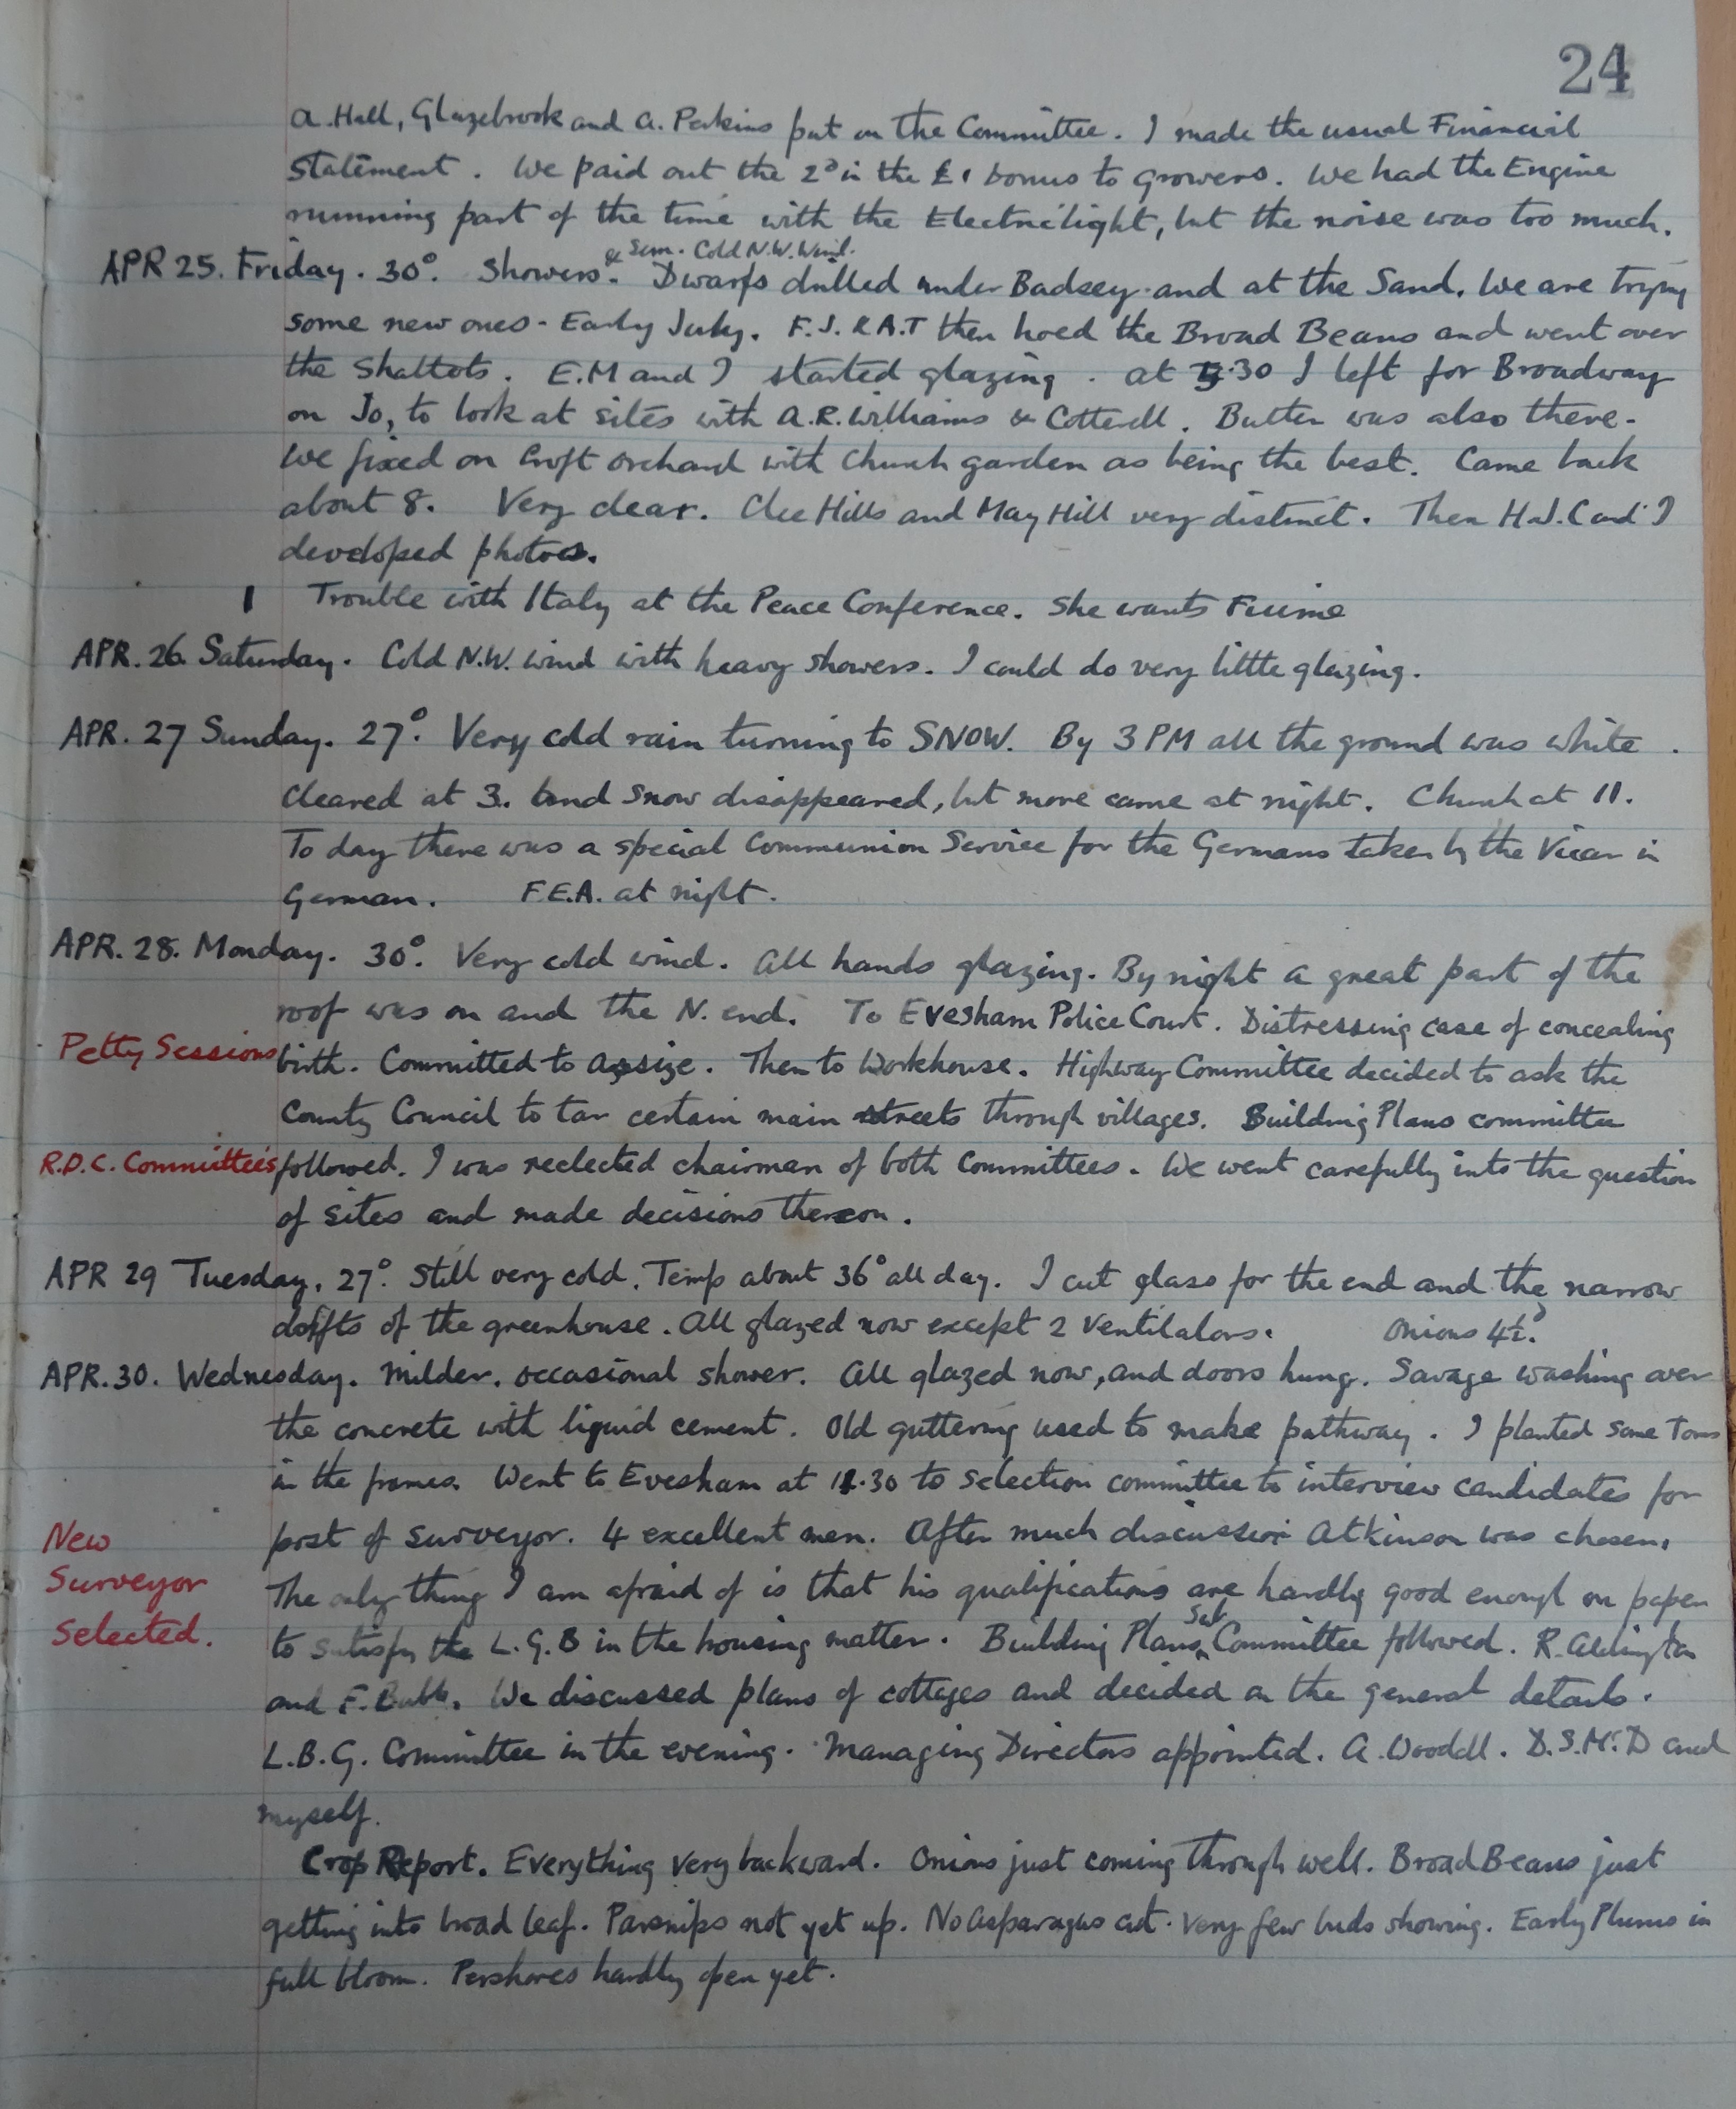 24
A. Hall, Glazebrook and A. Perkins put on the Committee. I made the usual Financial
Statement. We paid out the 2D in the £1 bonus to growers. We had the Engine
running part of the time with the Electric light, but the noise was too much.
& Sun. Cold N.W. Wind.
APR 25. Friday. 30°. Showers. Dwarfs drilled under Badsey and at the Sand. We are trying
some new ones - Early July. F.J. & A.T then hoed the Broad Beans and went over
the Shallots. E.M and I started glazing. At 5.30 I left for Broadway
on Jo, to look at sites with A.R. Williams & Cotterell. Butler was also there.
We fixed on Croft Orchard with Church garden as being the best. Came back
about 8. Very clear. Clee Hills and May Hill very distinct. Then H.J.C and I
developed photos.
Trouble with Italy at the Peace Conference. She wants Fiume
APR. 26. Saturday. Cold N.W. wind with heavy showers. I could do very little glazing.
APR. 27 Sunday. 27°. Very cold rain turning to SNOW. By 3 PM all the ground was white.
Cleared at 3. and snow disappeared, but more came at night. Church at 11.
To day there was a special Communion Service for the Germans taken by the Vicar in
German. F.E.A. at night.
APR. 28. Monday. 30°. Very cold wind. All hands glazing. By night a great part of the
roof was on and the N. end. To Evesham Police Court. Distressing case of concealing
Petty Sessions birth. Committed to Assize. Then to Workhouse. Highway Committee decided to ask the
County Council to tar certain main streets through villages. Building Plans committee
R.D.C. Committees followed. I was reelected chairman of both Committees. We went carefully into the question
of sites and made decisions thereon.
APR 29 Tuesday. 27°. Still very cold. Temp about 36° all day. I cut glass for the end and the narrow
of the greenhouse. All glazed now except 2 ventilators. Onions 4½D.
APR. 30. Wednesday. Milder. Occasional shower. All glazed now, and doors hung. Savage washing over
the concrete with liquid cement. Old guttering used to make pathway. I planted some Toms
in the frames. Went to Evesham at 11.30 to selection committee to interview candidates for
New Surveyor Selected.
post of surveyor. 4 excellent men. After much discussion Atkinson was chosen.
The only thing I am afraid of is that his qualifications are hardly good enough on paper
to satisfy the L.G.B in the housing matter. Building Plans Sub Committee followed. R. Addington
and F. Bubb. We discussed plans of cottages and decided on the general details.
L.B.G. Committee in the evening. Managing Directors appointed. A. Woodell. D.S.McD and
myself.
Crop Report. Everything very backward. Onions just coming through well. Broad Beans just
getting into broad leaf. Parsnips not yet up. No Asparagus cut. Very few buds showing. Early Plums in
full bloom. Pershores hardly open yet.